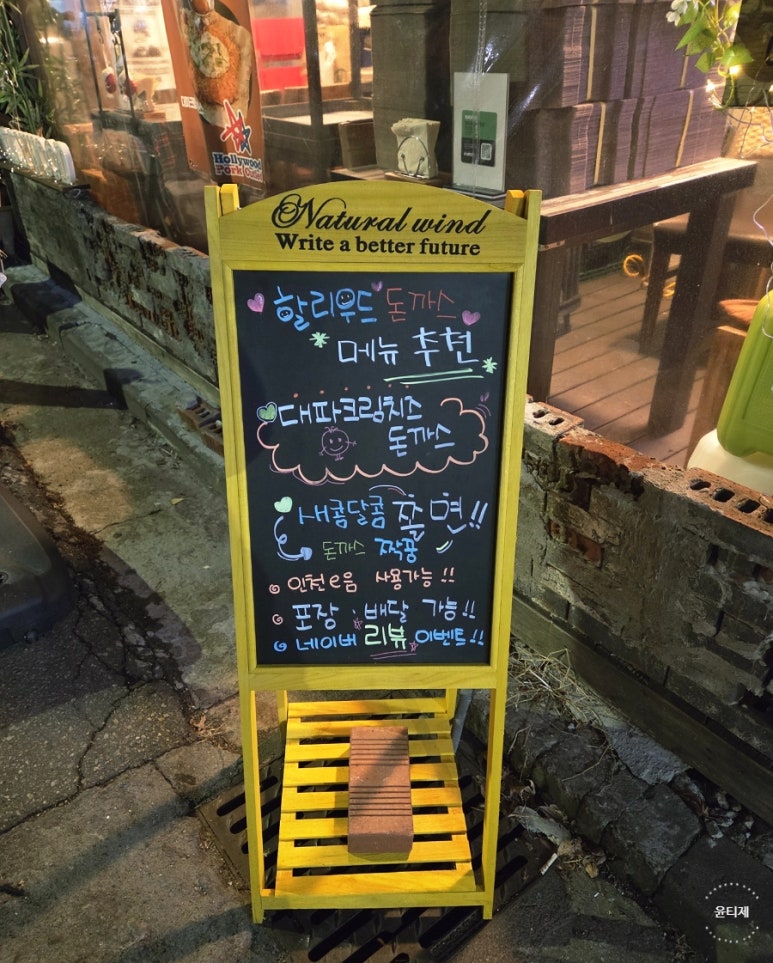 Hollywood
Pork
Natural wind
Write a better future
할리우드 돈까스
메뉴 추천
대파크림치즈
돈까스
새콤달콤 쫄면!!
돈까스 짝꿍
인천e음 사용가능!!
포장·배달 가능!!
네이버 리뷰 이벤트!!
윤티제